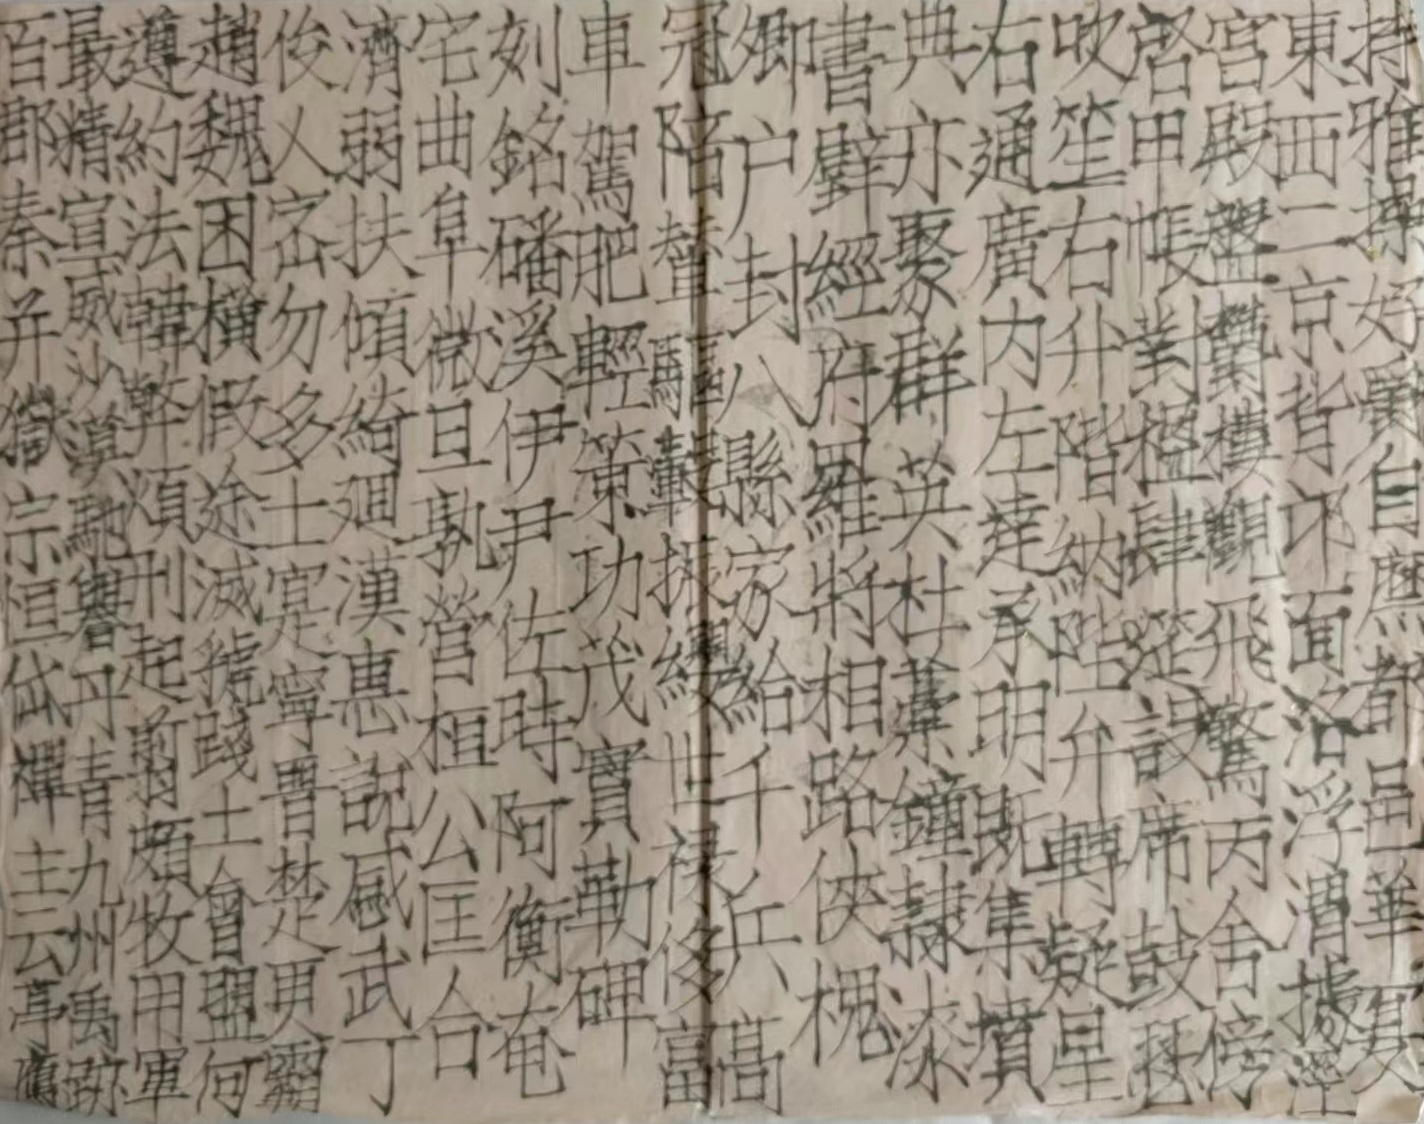 持雅操好爵自縻都邑華夏
東西二京背邙面洛浮渭據涇
宮殿盤鬱樓觀飛驚丙舍傍
啓甲帳對楹肆筵設席鼓瑟
吹笙右升階納陛弁轉疑星
右通廣内左達承明既集墳
典亦聚群英杜稾鍾隸漆
書壁經府羅將相路俠槐
卿户封八縣家給千兵高
冠陪輦驅轂振纓世禄侈富
車駕肥輕策功茂實勒碑
刻銘磻溪伊尹佐時阿衡奄
宅曲阜微旦孰營桓公匡合
濟弱扶傾綺迴漢惠說感武丁
俊乂密勿多士寔寧晉楚更霸
趙魏困橫假途滅虢踐土會盟何
遵約法韓弊煩刑起翦頗牧用軍
最精宣威沙漠馳譽丹青九州禹跡
百郡秦并嶽宗恒岱禪主云亭鴈